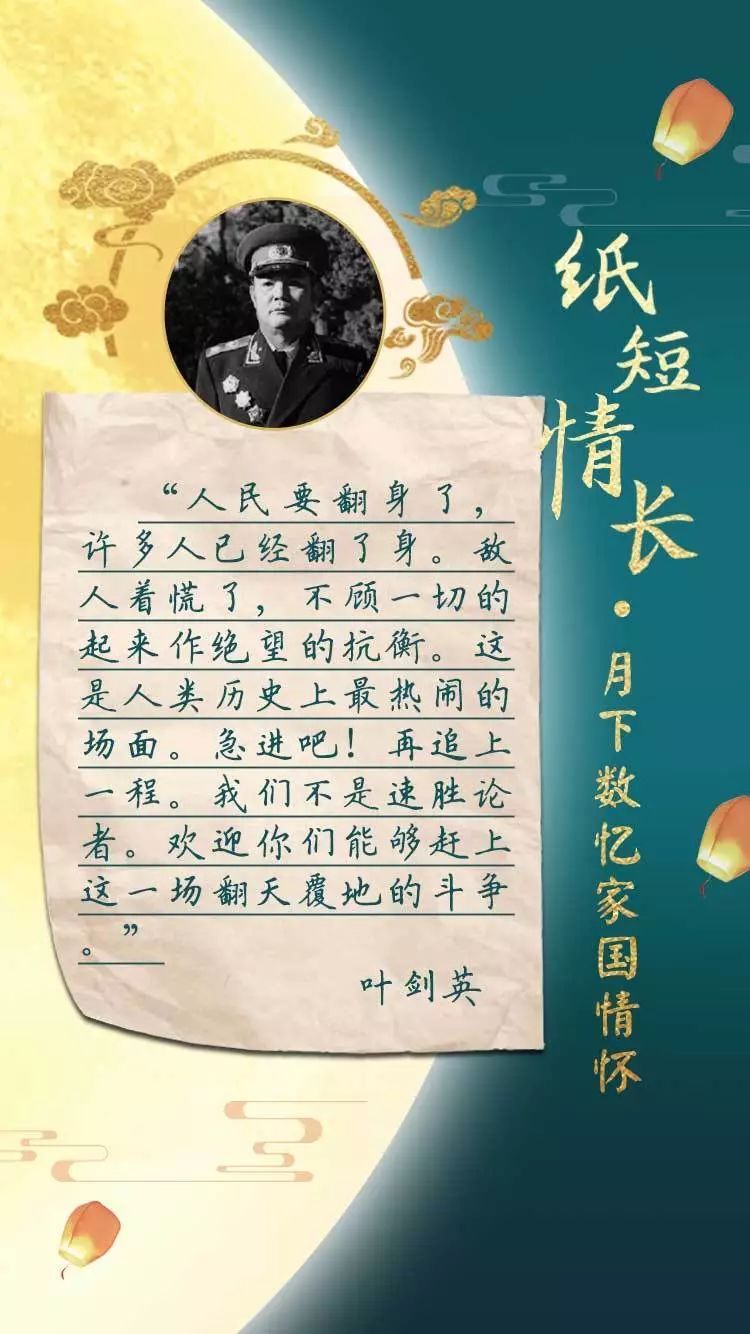 纸短情长·月下数忆家国情怀
“人民要翻身了，
许多人已经翻了身。敌
人着慌了，不顾一切的
起来作绝望的抗衡。这
是人类历史上最热闹的
场面。急进吧！再追上
一程。我们不是速胜论
者。欢迎你们能够赶上
这一场翻天覆地的斗争
。”
叶剑英